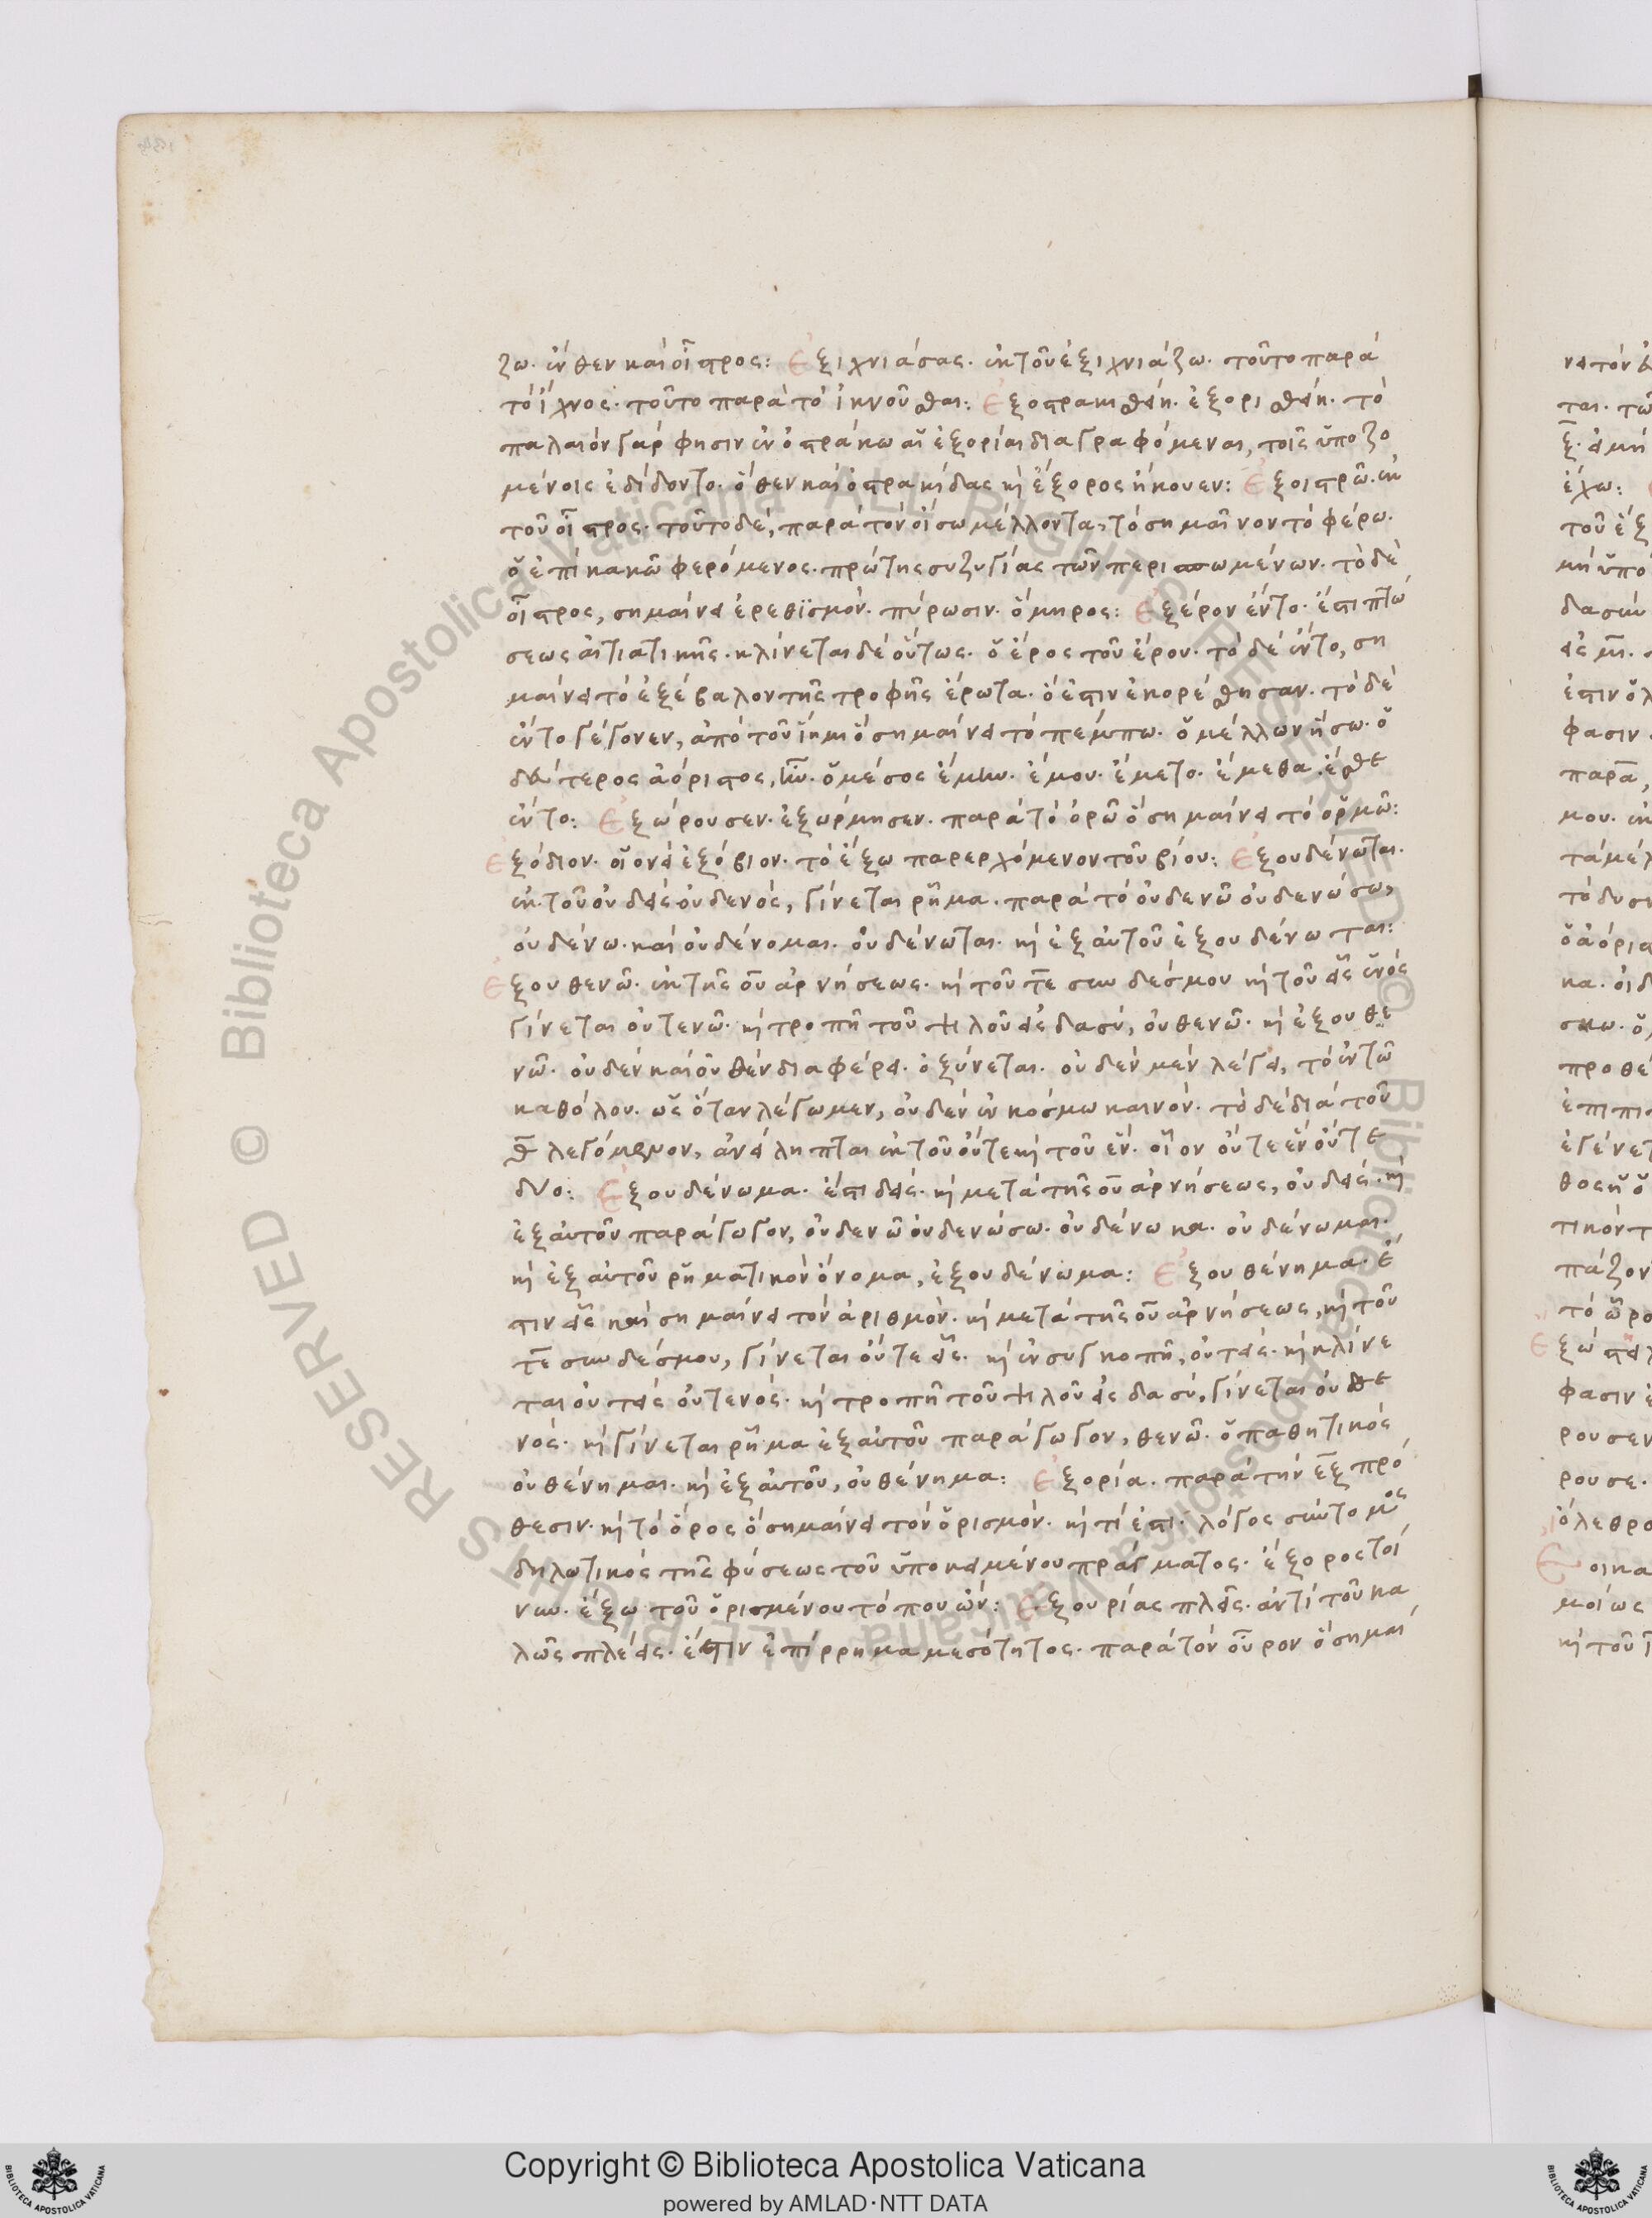 ζω. ἔνθεν καὶ οἶστρος: Ἐξιχνιάσας. ἐκ τοῦ ἐξιχνιάζω. τοῦτο παρὰ
τὸ ἴχνος. τοῦτο παρὰ τὸ ἱκνοῦσθαι: Ἐξοστρακισθείη. ἐξορισθείη. τὸ
παλαιὸν γάρ φησιν ἐν ὀστράκω αἱ ἐξορίαι διαγραφόμεναι, τοῖς
μένοις ἐδίδοντο. ὅθεν καὶ ὀστρακίδας καὶ ἔξορος ἤκουεν: Ἐξοιστρῶ. ἐκ
τοῦ οἶστρος. τοῦτο δὲ, παρὰ τὸν οἴσω μέλλοντα, τὸ σημαῖνον τὸ φέρω.
ὁ ἐπὶ κακῶ φερόμενος. πρώτης συζυγίας τῶν περισπωμένων. τὸ δὲ
οἶστρος, σημαίνει ἐρεθϊσμὸν. πύρωσιν. ὅμηρος: Ἐξέρον ἕντο. ἔστι πτώ
σεως αἰτιατικῆς. κλίνεται δὲ οὕτως. ὁ ἔρος τοῦ ἔρου. τὸ δὲ ἕντο, ση
μαίνει τὸ ἐξέβαλον τῆς τροφῆς ἔρωτα. ὅ ἐστιν ἐκορέσθησαν. τὸ δὲ
ἕντο γέγονεν, ἀπὸ τοῦ ἵημι ὃ σημαίνει τὸ πέμπω. ὁ μέλλων ἥσω. ὁ
δεύτερος ἀόριστος, ἦν. ὁ μέσος ἕμην. ἕμου. ἕμετο. ἕμεθα. ἕσθε
ἕντο: Ἐξώρουσεν. ἐξώρμησεν. παρὰ τὸ ὀρῶ ὃ σημαίνει τὸ ὁρμῶ:
Ἐξόδιον. οἱονεὶ ἐξόβιον. τὸ ἔξω παρερχόμενον τοῦ βίου: Ἐξουδένωται.
ἐκ τοῦ οὐδεὶς οὐδενὸς, γίνεται ρῆμα. παρὰ τὸ οὐδενῶ οὐδενώσω,
οὐδένω. καὶ οὐδένομαι. οὐδένωται. καὶ ἐξ αὐτοῦ ἐξουδένωται:
Ἐξουθενῶ. ἐκ τῆς οὐ ἀρνήσεως. καὶ τοῦ τε συνδέσμου καὶ τοῦ εἷς ἑνὸς
γίνεται οὐτενῶ. καὶ τροπῆ τοῦ ψιλοῦ εἰς δασύ, οὐθενῶ. καὶ ἐξουθε
νῶ. οὐδὲν καὶ οὐθὲν διαφέρει. ὀξύνεται. οὐδὲν μὲν λέγει, τὸ ἐν τῶ
καθόλου. ὡς ὅταν λέγωμεν, οὐδὲν ἐν κόσμω καινόν. τὸ δὲ διὰ τοῦ
θ λεγόμενον, ἀνείληπται ἐκ τοῦ οὔτε καὶ τοῦ ἕν. οἷον οὔτε ἓν οὔτε
δύο: Ἐξουδένωμα. ἔστι δεὶς. καὶ μετὰ τῆς οὐ ἀρνήσεως, οὐδείς. καὶ
ἐξ αὐτοῦ παράγωγον, οὐδενῶ οὐδενώσω. οὐδένωκα. οὐδένωμαι.
καὶ ἐξ αὐτοῦ ρηματικὸν ὄνομα, ἐξουδένωμα: Ἐξουθένημα. ἔ
στιν εἷς καὶ σημαίνει τὸν ἀριθμὸν. καὶ μετὰ τῆς οὐ ἀρνήσεως, καὶ τοῦ
τε συνδέσμου, γίνεται οὔτε εἷς. καὶ ἐν συγκοπῆ, οὐτείς. καὶ κλίνε
ται οὐτεὶς οὐτενός. καὶ τροπῆ τοῦ ψιλοῦ εἰς δασύ, γίνεται οὐθε
νός. καὶ γίνεται ρῆμα ἐξ αὐτοῦ παράγωγον, θενῶ. ὁ παθητικὸς
οὐθένημαι. καὶ ἐξ αὐτοῦ, οὐθένημα: Ἐξορία. παρὰ τὴν ἐξ πρό
θεσιν. καὶ τὸ ὅρος ὃ σημαίνει τὸν ὁρισμόν. καὶ τί ἐστι. λόγος σύντομος
δηλωτικὸς τῆς φύσεως τοῦ ὑποκειμένου πράγματος. ἔξορος τοί
νυν. ἔξω τοῦ ὁρισμένου τόπου ὤν: Ἐξουρίας πλεῖς. ἀντὶ τοῦ κα
λῶς πλέεις. ἔστιν ἐπίρρημα μεσότητος. παρὰ τὸν οὖρον ὃ σημαί
Copyright © Biblioteca Apostolica Vaticana
powered by AMLAD·NTT DATA